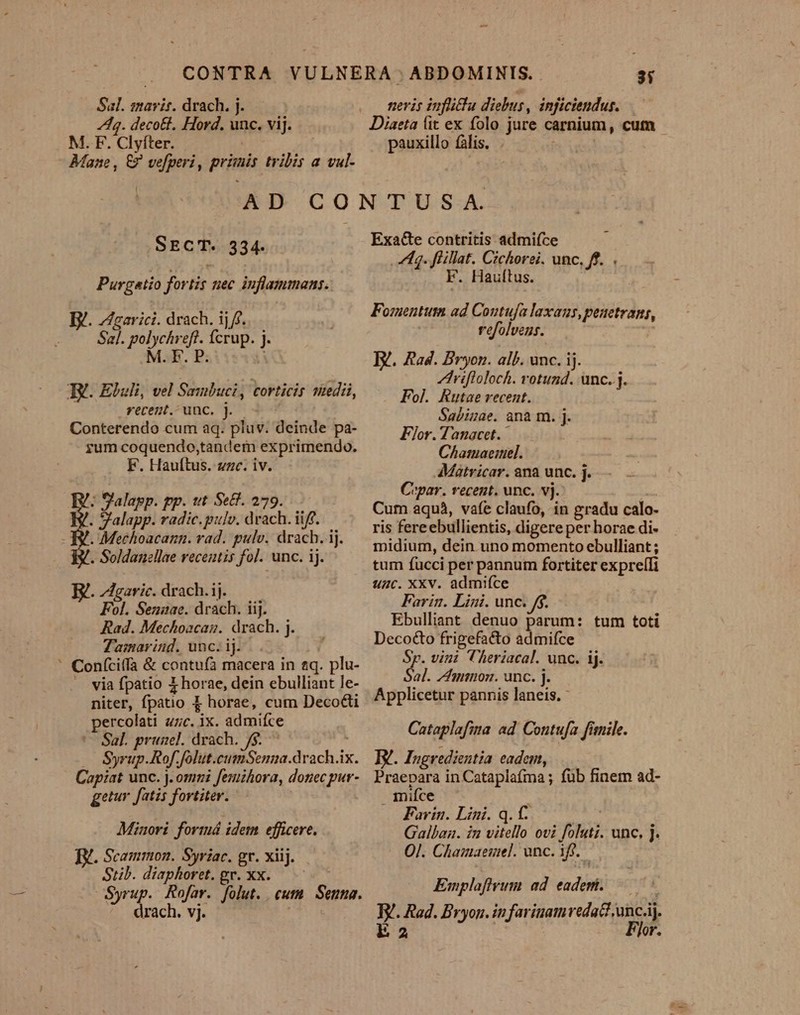 CONTRA VULNERA ABDOMINIS. 35
Sal. maris. drach. j.
Aq. decoct. Hord. unc. vij.
M. F. Clyſter.
Mane, & veſperi, primis tribis a vul-
neris inflictu diebus, injiciendus.
Diaeta ſit ex ſolo jure carnium, cum
pauxillo ſalis.
AD CONTUSA.
SECT. 334.
Purgatio fortis nec inflammans.
℞. Agarici. drach. ijß.
Sal. polychreſt. ſcrup. j.
M. F. P.
℞. Ebuli, vel Sambuci, corticis medii,
recent. unc. j.
Conterendo cum aq. pluv. deinde pa-
rum coquendo, tandem exprimendo.
F. Hauſtus. unc. iv.
℞. Jalapp. pp. ut Sect. 279.
℞. Jalapp. radic. pulv. drach. iiß.
℞. Mechoacann. rad. pulv. drach. ij.
℞. Soldanellae recentis fol. unc. ij.
℞. Agaric. drach. ij.
Fol. Sennae. drach. iij.
Rad. Mechoacan. drach. j.
Tamarind. unc. ij.
Conſciſſa & contuſa macera in aq. plu-
via ſpatio ½ horae, dein ebulliant le-
niter, ſpatio ½ horae, cum Decocti
percolati unc. ix. admiſce
Sal. prunel. drach. ß.
Syrup. Roſ. ſolut. cum Senna. drach. ix.
Capiat unc. j. omni ſemihora, donec pur-
getur ſatis fortiter.
Minori formâ idem efficere.
℞. Scammon. Syriac. gr. xiij.
Stib. diaphoret. gr. xx.
Syrup. Roſar. ſolut. cum Senna.
drach. vj.
Exacte contritis admiſce
Aq. ſtillat. Cichorei. unc. ß.
F. Hauſtus.
Fomentum ad Contuſa laxans, penetrans,
reſolvens.
℞. Rad. Bryon. alb. unc. ij.
Ariſtoloch. rotund. unc. j.
Fol. Rutae recent.
Sabinae. ana m. j.
Flor. Tanacet.
Chamaemel.
Matricar. ana unc. j.
Cepar. recent. unc. vj.
Cum aquâ, vaſe clauſo, in gradu calo-
ris fere ebullientis, digere per horae di-
midium, dein uno momento ebulliant;
tum ſucci per pannum fortiter expreſſi
unc. xxv. admiſce
Farin. Lini. unc. ß.
Ebulliant denuo parum: tum toti
Decocto frigefacto admiſce
Sp. vini Theriacal. unc. ij.
Sal. Ammon. unc. j.
Applicetur pannis laneis.
Cataplaſma ad Contuſa ſimile.
℞. Ingredientia eadem,
Praepara in Cataplaſma; ſub finem ad-
miſce
Farin. Lini. q. ſ.
Galban. in vitello ovi ſoluti. unc. j.
Ol. Chamaemel. unc. iß.
Emplaſtrum ad eadem.
℞. Rad. Bryon. in farinam redact. unc. ij.
E 2 Flor.